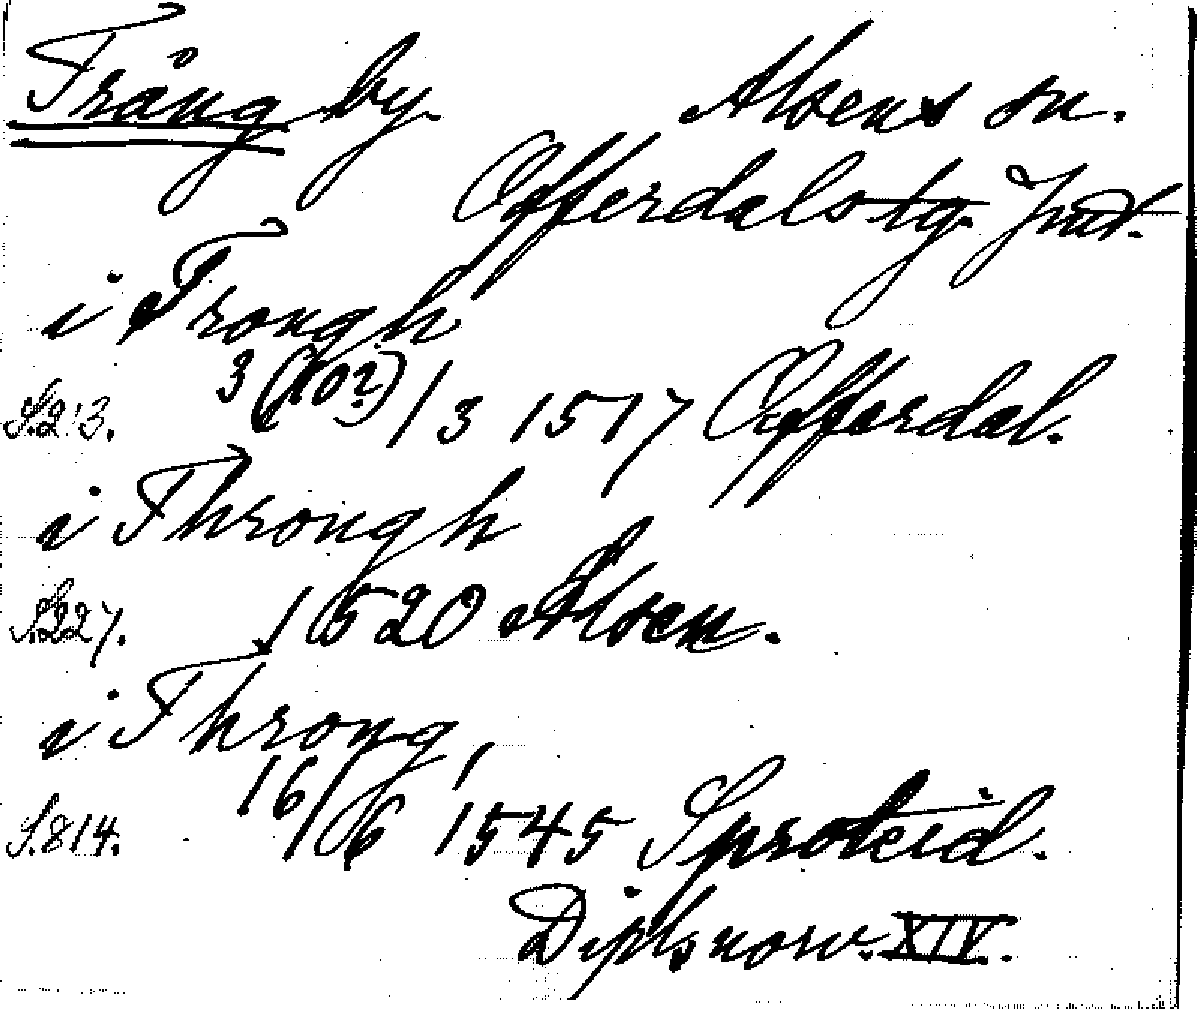 Trång by. Alsens sn.
Offerdals tg. Jmt.
i Trongh
S. 213. 3 (10?)/3 1517 Offerdal.
i Throngh
S. 227. 1520 Alsen.
i Throng,
S. 814. 16/6 1545 Sproteid.
Dipl. norv. XIV.